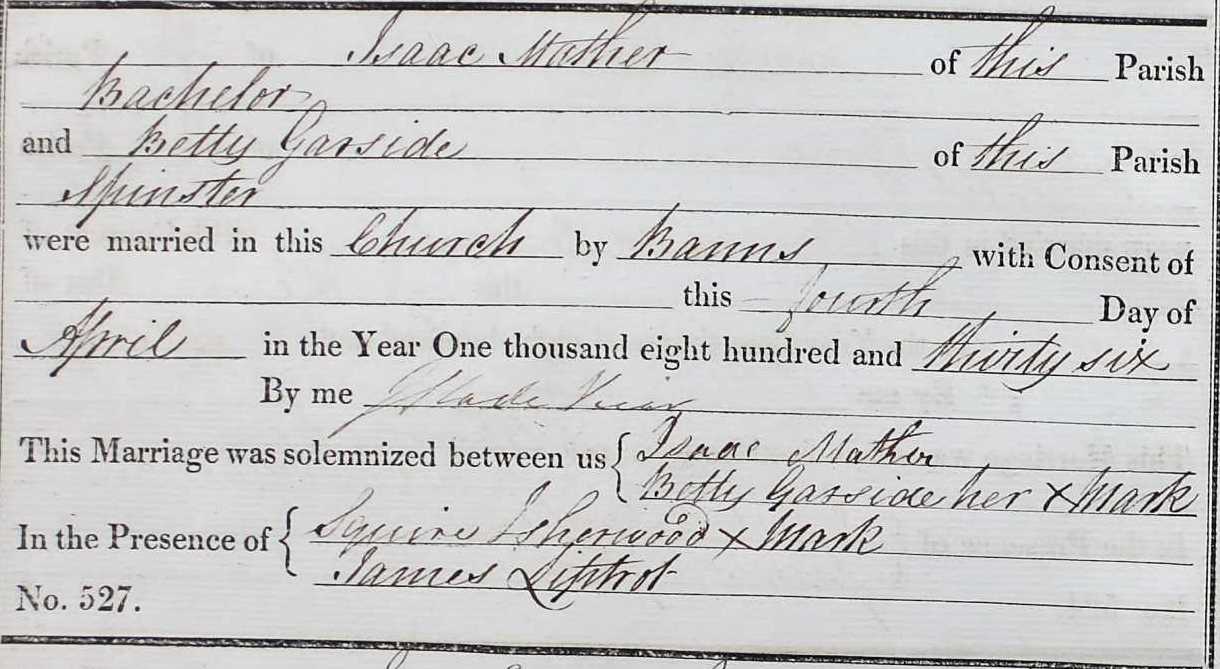 Isaac Mather of this Parish
Bachelor
and Betty Garside of this Parish
Spinster
were married in this Church by Banns with Consent of
this fourth Day of
April in the Year One thousand eight hundred and thirty six
By me Slade Vicar
This Marriage was solemnized between us { Isaac Mather
Betty Garside her x Mark
In the Presence of { Squire Isherwood x Mark
James Liptrot
No. 527.